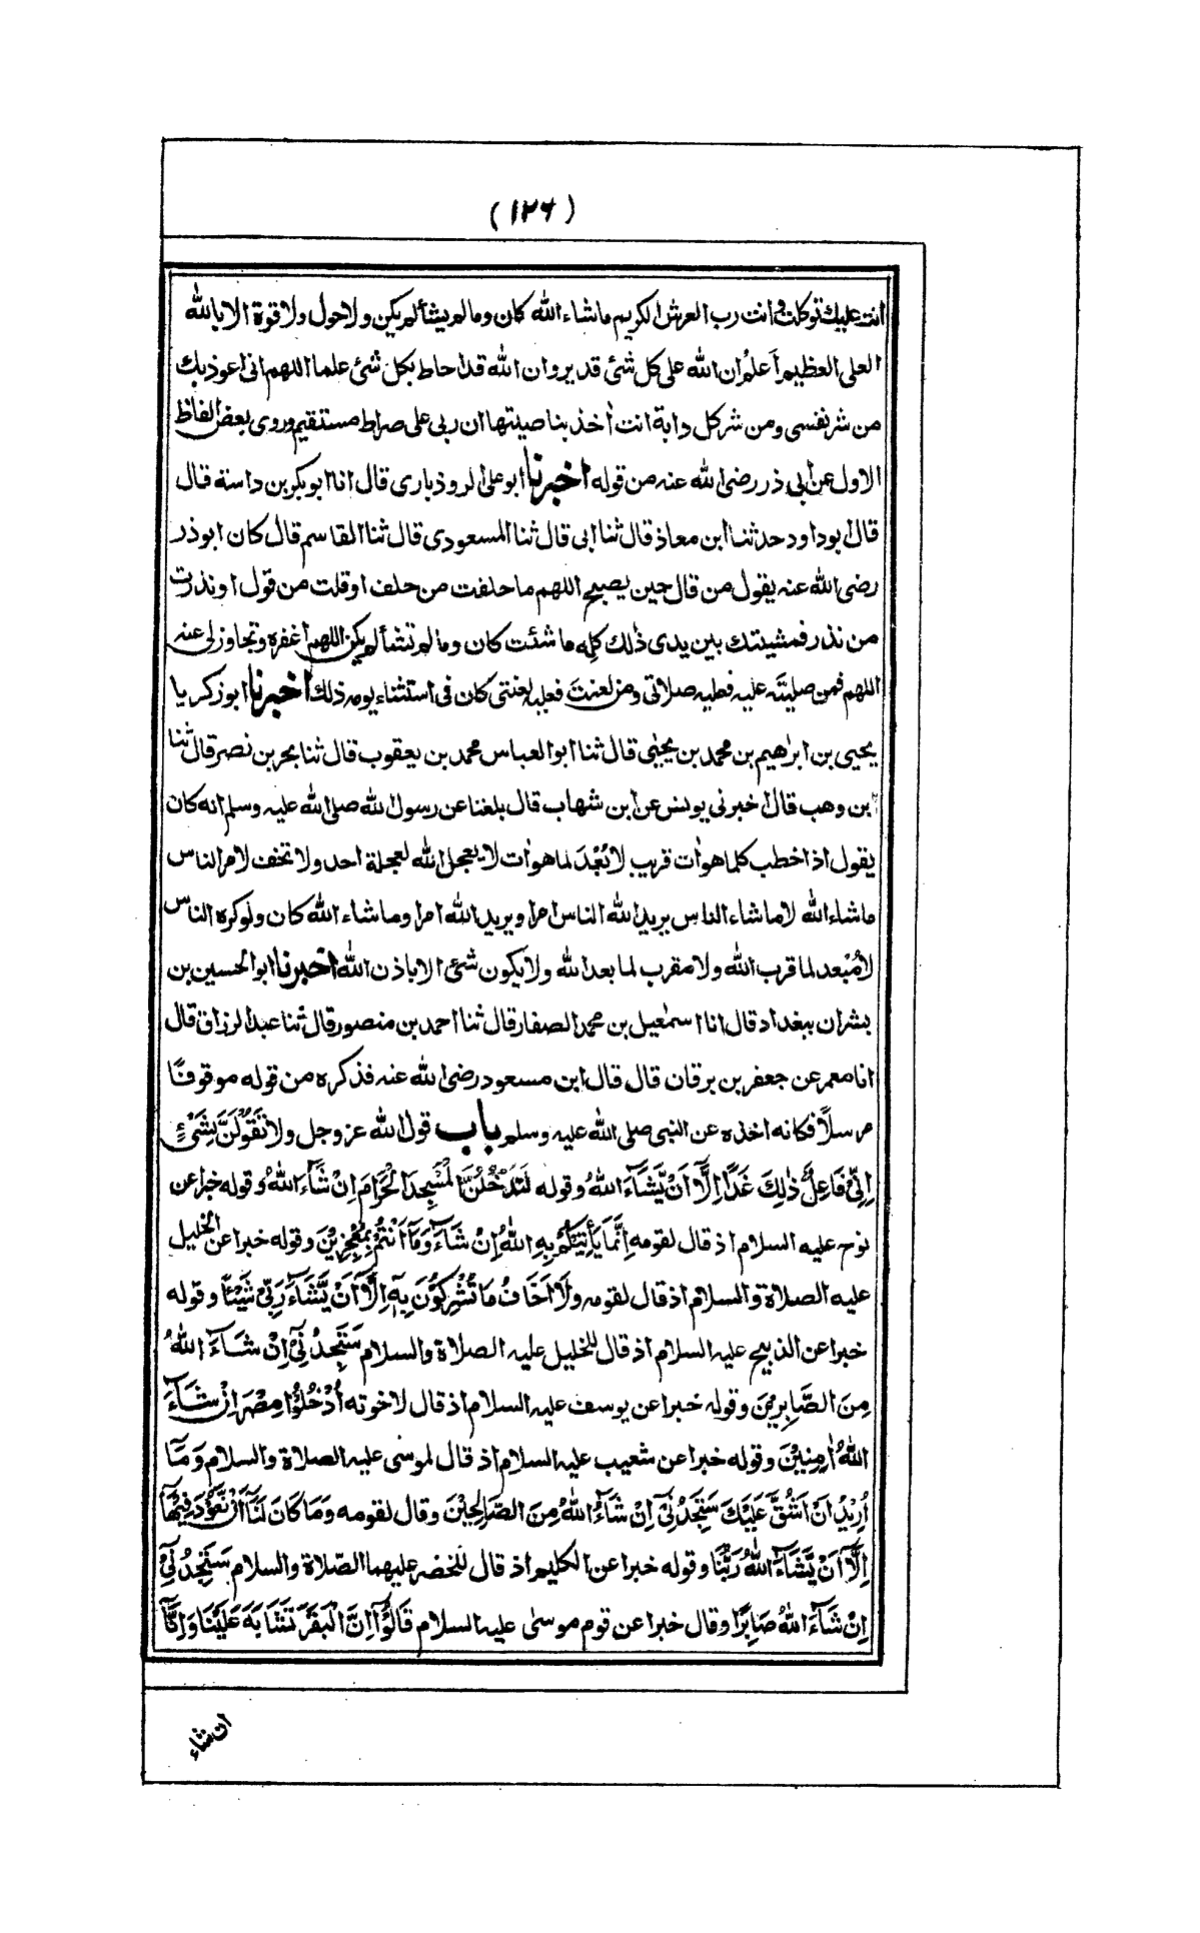 (١٢٦)
انت عليك توكلت وانت رب العرش الكريم ماشاء الله كان ومالم يشألم يكن ولاحول ولاقوة الا بالله
العلى العظيم اَعلمُ ان الله على كل شئ قدير وان الله قد احاط بكل شئ علما اللهم انى اعوذ بك
من شر نفسى ومن شر كل دابة انت اٰخذ بنا صيتها ان ربى على صراط مستقيم وروى بعض الفاظ
الاول عن ابى ذر رضى الله عنه من قوله اخبرنا ابو على الروذبارى قال انا ابوبكر بن داسة قال
قال ابوداود حدثنا ابن معاذ قال ثنا ابى قال ثنا المسعودى قال ثنا القاسم قال كان ابوذر
رضى الله عنه يقول من قال حين يصبح اللهم ما حلفت من حلف اوقلت من قول اونذرت
من نذر فمشيئتك بين يدى ذٰلك كلِه ما شئت كان ومالم تشألم يكن اللهم اغفره وتجاوزلى عنه
اللهم فمن صليتَ عليه فعليه صلاتى ومن لعنتَ فعليه لعنتى كان فى استثناء يومه ذلك اخبرنا ابوزكريا
يحيى بن ابرٰهيم بن محمد بن يحيٰى قال ثنا ابوالعباس محمد بن يعقوب قال ثنا بحر بن نصر قال ثنا
ابن وهب قال اخبرنى يونس عن ابن شهاب قال بلغنا عن رسول الله صلى الله عليه وسلم انه كان
يقول اذا خطب كلما هواٰت قريب لابُعْدَ لما هواٰت لايعجل الله لعجلة احد ولا تخف لامرالناس
ماشاءالله لاماشاء الناس يريد الله الناس امرا ويريد الله امرا وماشاء الله كان ولوكره الناس
لامُبْعد لما قرب الله ولا مقرب لما بعد الله ولايكون شئ الا باذن الله اخبرنا ابوالحسين بن
بشران ببغداد قال انا اسمٰعيل بن محمد الصفار قال ثنا احمد بن منصور قال ثنا عبد الرزاق قال
انا معمر عن جعفر بن برقان قال قال ابن مسعود رضى الله عنه فذكره من قوله موقوفًا
مرسلاً فكانه اخذه عن النبى صلى الله عليه وسلم باب قول الله عزوجل ولا تَقُوْلَنَّ بِشَىْءٍ
اِنِّىْ فَاعِلٌ ذٰلِكَ غَدًا اِلَّا اَنْ يَّشَآءَ اللهُ وقوله لَتَدْخُلُنَّ الْمَسْجِدَ الْحَرَامَ اِنْ شَآءَ اللهُ وقوله خبرا عن
نوح عليه السلام اذ قال لقومه اِنَّمَا يَأْتِيْكُمْ بِهِ اللهُ اِنْ شَآءَ وَمَآ اَنْتُمْ بِمُعْجِزِيْنَ وقوله خبرا عن الخليل
عليه الصلاة والسلام اذ قال لقومه وَلَآ اَخَافُ مَا تُشْرِكُوْنَ بِهٖٓ اِلَّآ اَنْ يَّشَآءَ رَبِّىْ شَيْئًا وقوله
خبرا عن الذبيح عليه السلام اذ قال للخليل عليه الصلاة والسلام سَتَجِدُنِىْٓ اِنْ شَآءَ اللهُ
مِنَ الصّٰبِرِيْنَ وقوله خبرا عن يوسف عليه السلام اذ قال لاخوته اُدْخُلُوْا مِصْرَ اِنْ شَآءَ
اللهُ اٰمِنِيْنَ وقوله خبرا عن شعيب عليه السلام اذ قال لموسٰى عليه الصلاة والسلام وَمَآ
اُرِيْدُ اَنْ اَشُقَّ عَلَيْكَ سَتَجِدُنِىْٓ اِنْ شَآءَ اللهُ مِنَ الصّٰلِحِيْنَ وقال لقومه وَمَا كَانَ لَنَآ اَنْ نَّعُوْدَ فِيْهَآ
اِلَّآ اَنْ يَّشَآءَ اللهُ رَبُّنَا وقوله خبرا عن الكليم اذ قال للخضر عليهما الصّلاة والسلام سَتَجِدُنِىْٓ
اِنْ شَآءَ اللهُ صَابِرًا وقال خبرا عن قوم موسىٰ عليه السلام قَالُوْٓا اِنَّ الْبَقَرَ تَشٰبَهَ عَلَيْنَا وَاِنَّآ
ان شاء